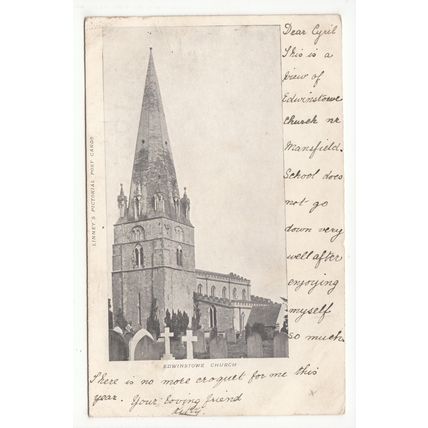 Dear Cyril
This is a
view of
Edwinstowe
Church nr
Mansfield.
School does
not go
down very
well after
enjoying
myself
so much.
LINNEY'S PICTORIAL POST CARDS
EDWINSTOWE CHURCH
There is no more croquet for me this
year. Your loving friend